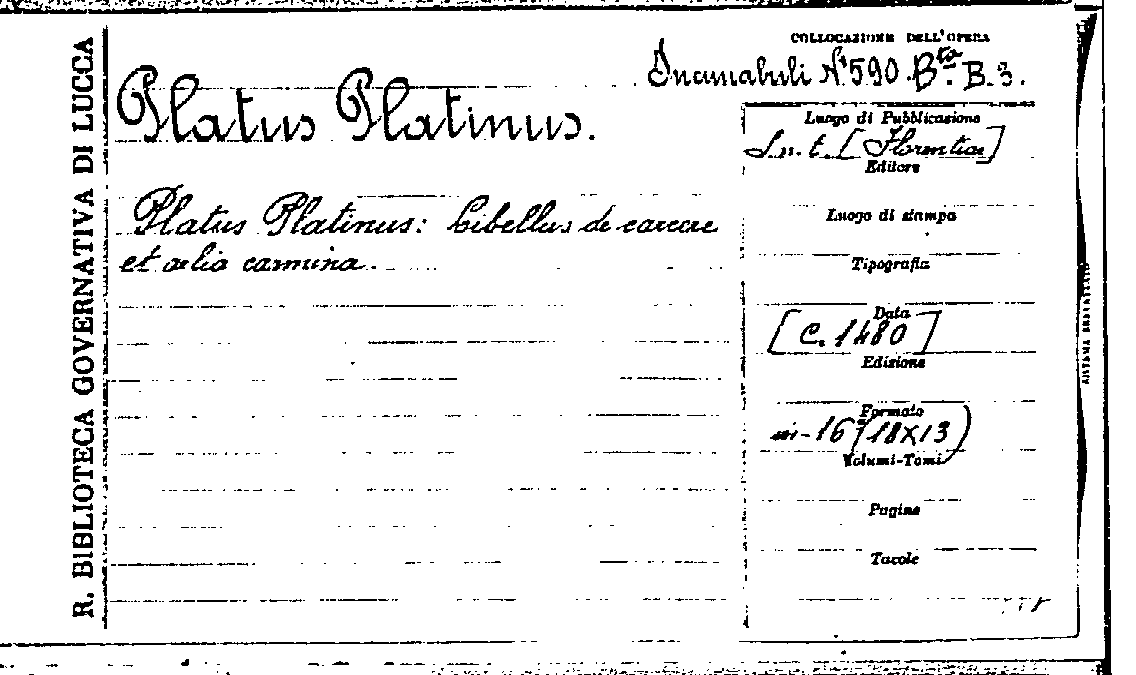 R. BIBLIOTECA GOVERNATIVA DI LUCCA
COLLOCAZIONE DELL'OPERA
Incunabuli N° 590. Bta. B. 3.
Platus Platinus.
Luogo di Pubblicazione
S. n. t. [Florentiae]
Editore
Platus Platinus: Libellus de carcere
et alia carmina.
Luogo di stampa
Tipografia
Data
[c. 1480]
Edizione
Formato
in-16° (18x13)
Volumi-Tomi
Pagine
Tavole